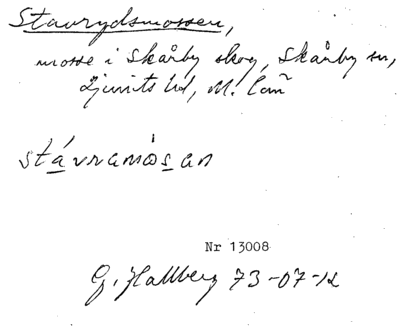 Stavrydsmossen,
mosse i Skårby skog, Skårby sn,
Ljunits hd, M. län
stávramòsan
Nr 13008
G. Hallberg 73-07-12